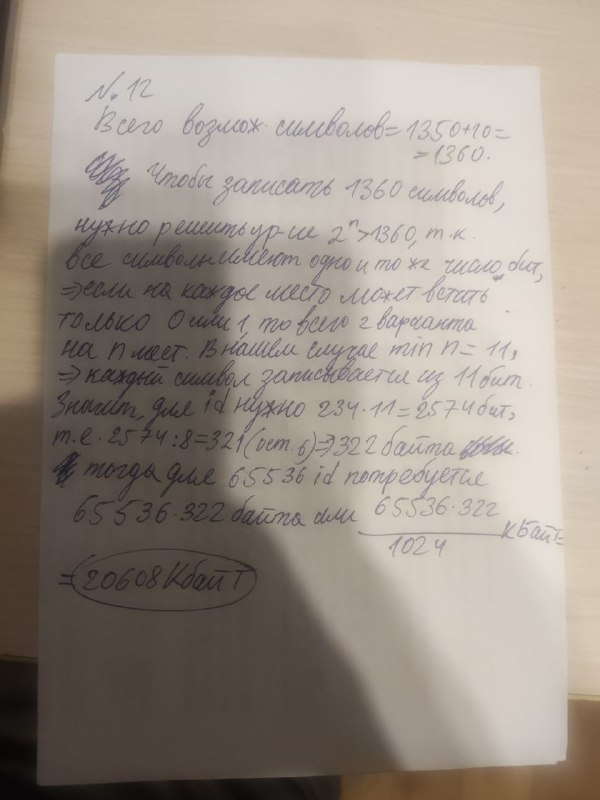 № 12
Всего возмож. символов = 1350+10=
=1360.
Чтобы записать 1360 символов,
нужно решить ур-ие 2ⁿ>1360, т.к.
все символы имеют одно и то же число бит,
⇒ если на каждое место может встать
только 0 или 1, то всего 2 варианта
на n мест. В нашем случае min n = 11,
⇒ каждый символ записывается из 11 бит.
Значит, для id нужно 234·11=2574 бит,
т.е. 2574:8=321(ост. 6)⇒322 байта
тогда для 65536 id потребуется
65536·322 байта или 65536·322/1024 кБайт=
=20608 Кбайт